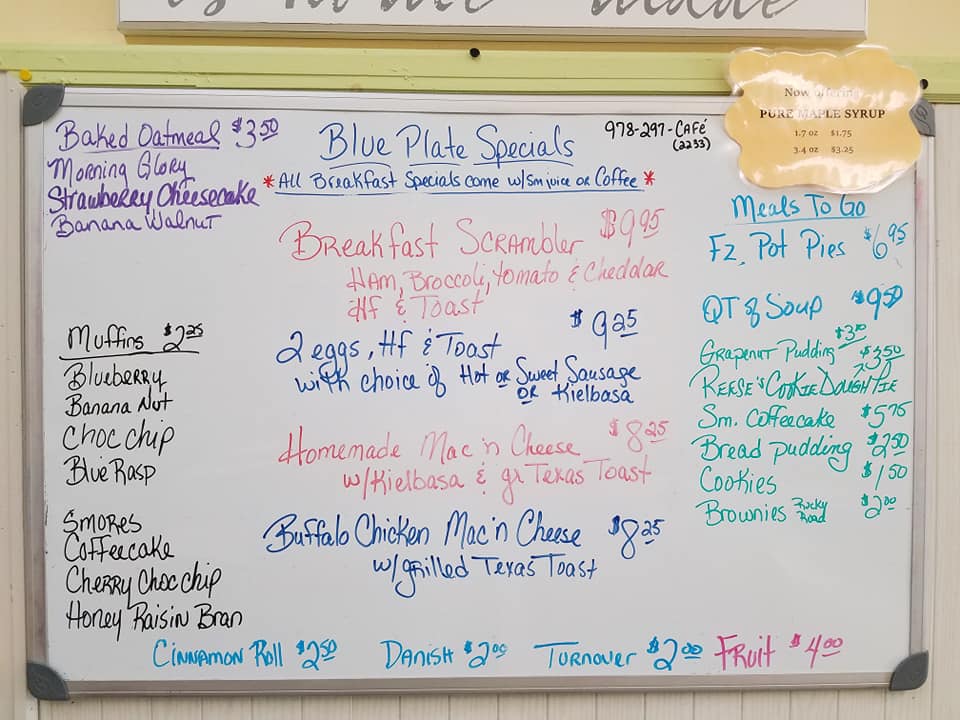 is home made
Now offering
PURE MAPLE SYRUP
1.7 oz $1.75
3.4 oz $3.25
Baked Oatmeal $3.50
Morning Glory
Strawberry Cheesecake
Banana Walnut
Muffins $2.25
Blueberry
Banana Nut
Choc chip
Blue Rasp
Smores
Coffeecake
Cherry Choc chip
Honey Raisin Bran
Blue Plate Specials
978-297-CAFÉ
(2233)
*All Breakfast Specials come w/sm juice or Coffee*
Breakfast Scrambler $9.95
Ham, Broccoli, Tomato & Cheddar
Hf & Toast
2 eggs, Hf & Toast $9.25
with choice of Hot or Sweet Sausage
or Kielbasa
Homemade Mac'n Cheese $8.25
w/Kielbasa & gr Texas Toast
Buffalo Chicken Mac'n Cheese $8.25
w/grilled Texas Toast
Meals To Go
Fz. Pot Pies $6.95
QT of Soup $9.50
Grapenut Pudding $3.00
Reese's Cookie Dough Pie $3.50
Sm. Coffeecake $5.75
Bread pudding $2.50
Cookies $1.50
Brownies Rocky Road $2.00
Cinnamon Roll $2.50 Danish $2.00 Turnover $2.00 Fruit $4.00